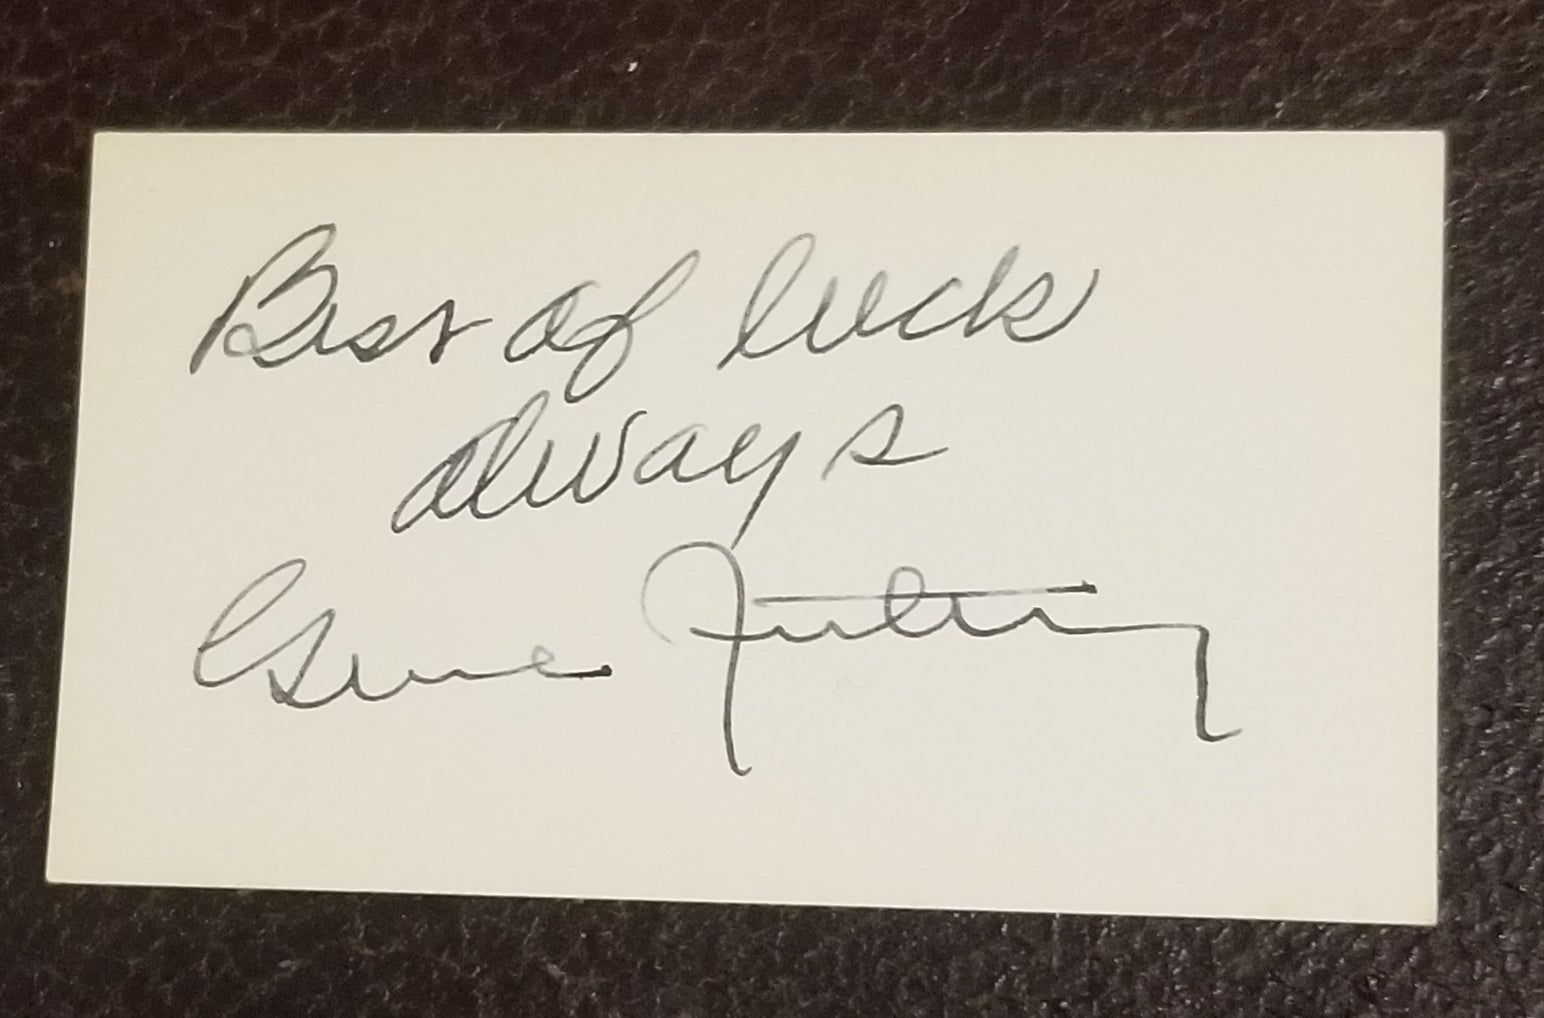 Best of luck
always
Gene